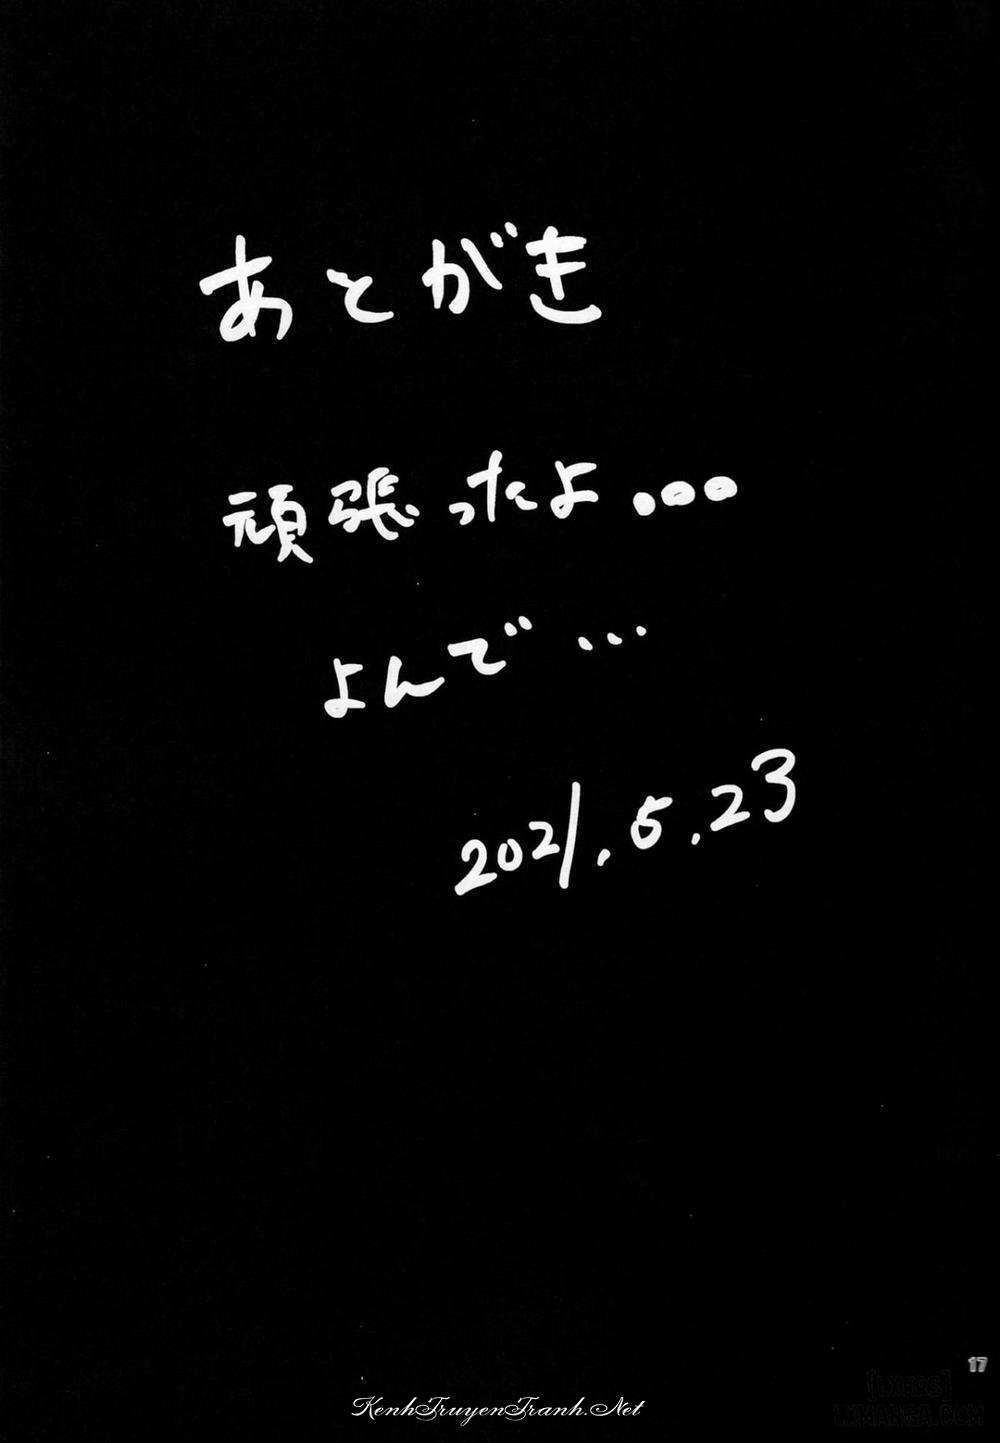 あとがき
頑張ったよ...
よんで...
2021.5.23
17
[LXERS]
LXMANGA.COM
KenhTruyenTranh.Net